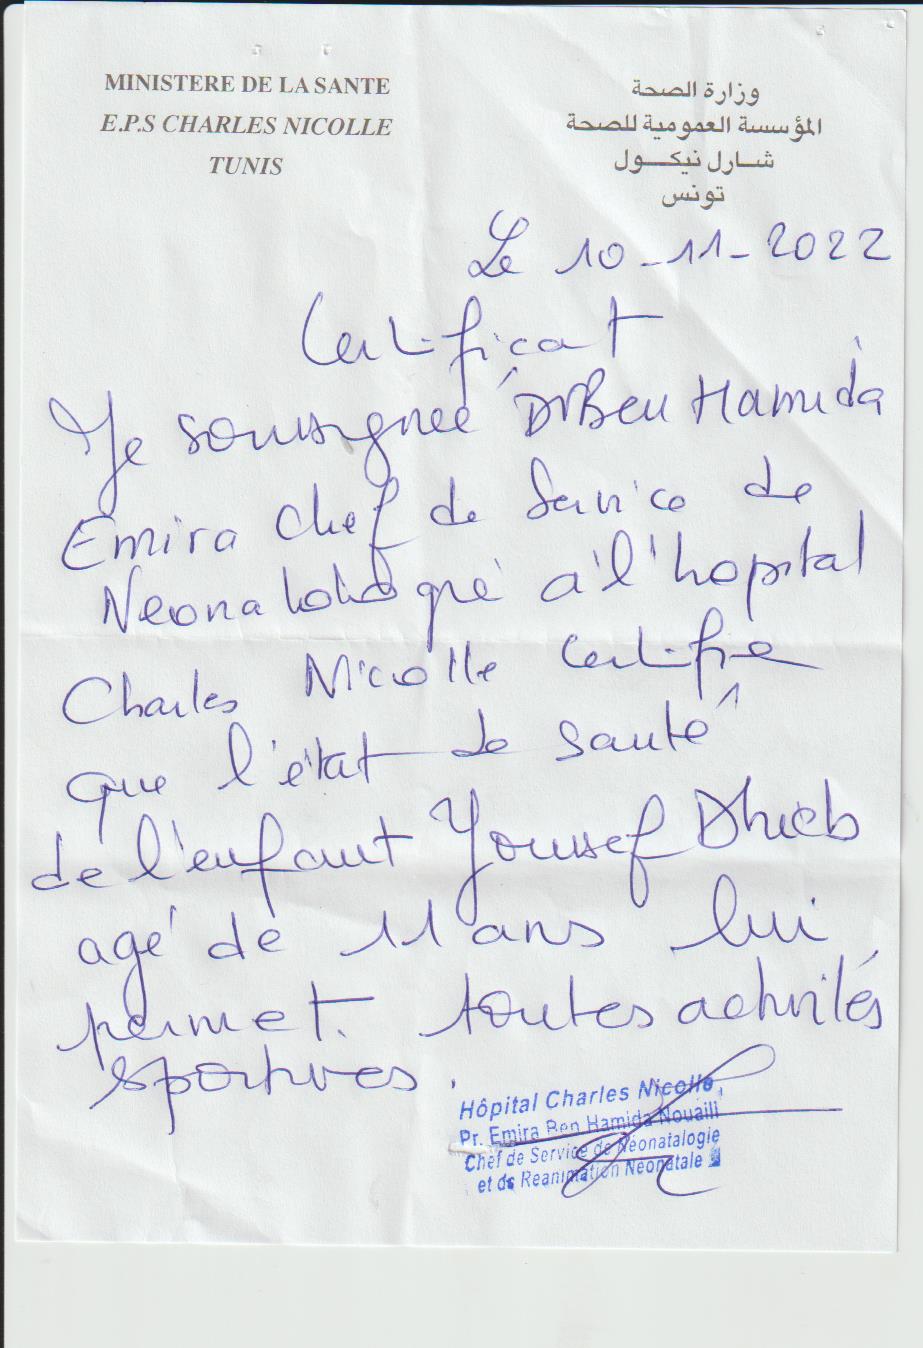 MINISTERE DE LA SANTE
E.P.S CHARLES NICOLLE
TUNIS
وزارة الصحة
المؤسسة العمومية للصحة
شارل نيكول
تونس
Le 10-11-2022
Certificat
Je soussignée Dr Ben Hamida
Emira Chef de Service de
Néonatologie à l'hopital
Charles Nicolle certifie
que l'état de santé
de l'enfant Youssef Dhieb
agé de 11 ans lui
permet toutes activités
sportives.
Hôpital Charles Nicolle
Pr. Emira Ben Hamida Nouaili
Chef de Service de Néonatalogie
et de Reanimation Néonatale